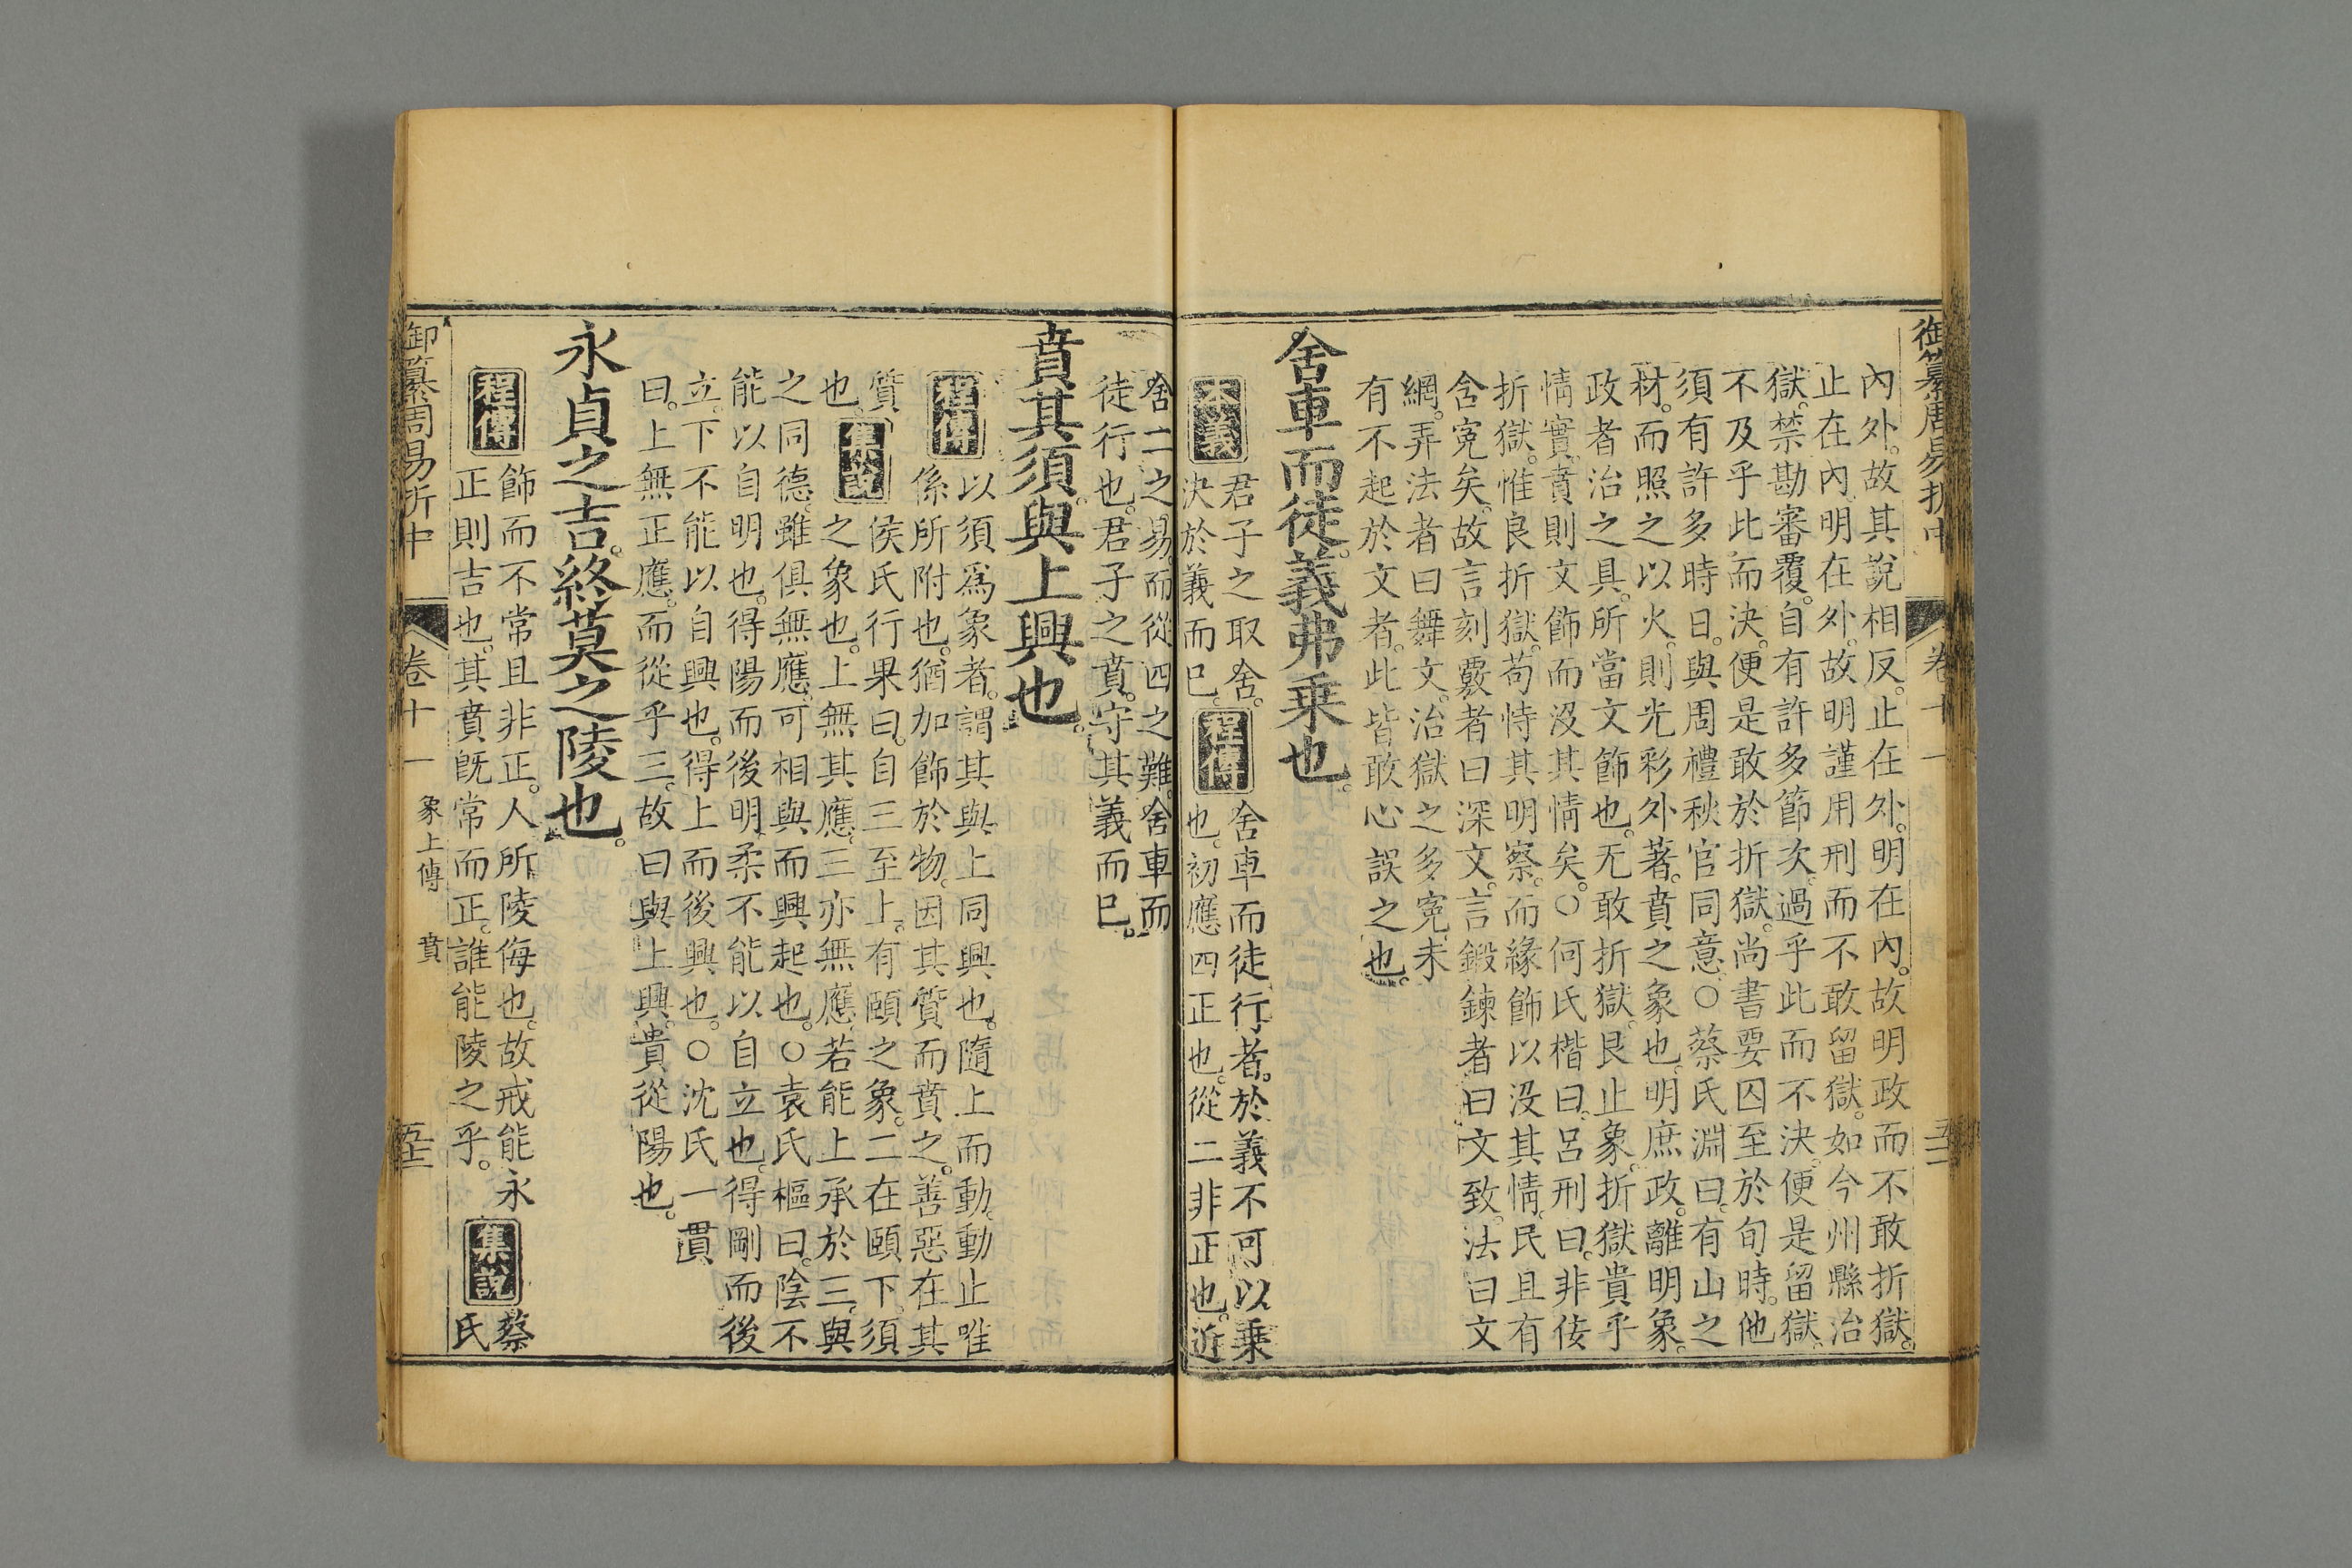 御纂周易折中
卷十一
內外。故其說相反。止在外。明在內。故明政而不敢折獄。
止在內。明在外。故明謹用刑而不敢留獄。如今州縣治
獄。禁勘審覆。自有許多節次。過乎此而不決。便是留獄。
不及乎此而決。便是敢於折獄。尚書要囚至於旬時。他
須有許多時日。與周禮秋官同意。○蔡氏淵曰。有山之
材。而照之以火。則光彩外著。賁之象也。明庶政。離明象。
政者治之具。所當文飾也。无敢折獄。艮止象。折獄貴乎
情實。賁則文飾而沒其情矣。○何氏楷曰。呂刑曰。非佞
折獄。惟良折獄。苟恃其明察。而緣飾以沒其情。民且有
含冤矣。故言刻覈者曰深文。言鍛鍊者曰文致。法曰文
網。弄法者曰舞文。治獄之多冤。未
有不起於文者。此皆敢心誤之也。
舍車而徒。義弗乘也。
本義
君子之取舍。
決於義而已。
程傳
舍車而徒行者。於義不可以乘
也。初應四正也。從二非正也。近
舍二之易而從四之難。舍車而
徒行也。君子之賁。守其義而已。
賁其須。與上興也。
程傳
以須爲象者。謂其與上同興也。隨上而動。動止唯
係所附也。猶加飾於物。因其質而賁之。善惡在其
質
也。
集說
侯氏行果曰。自三至上。有頤之象。二在頤下。須
之象也。上無其應。三亦無應。若能上承於三。與
之同德。雖俱無應。可相與而興起也。○袁氏樞曰。陰不
能以自明也。得陽而後明。柔不能以自立也。得剛而後
立。下不能以自興也。得上而後興也。○沈氏一貫
曰。上無正應。而從乎三。故曰與上興。貴從陽也。
永貞之吉。終莫之陵也。
程傳
飾而不常且非正。人所陵侮也。故戒能永
正則吉也。其賁旣常而正。誰能陵之乎。
集說
蔡
氏
御纂周易折中
卷十一
象上傳
賁